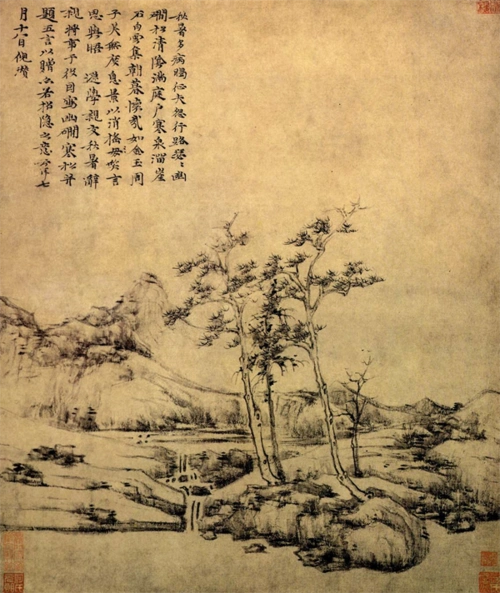 秋暑多病暍征夫怨行路瑟〻幽
澗松清陰滿庭户寒泉溜崖
石白雲集朝暮懷哉如金玉周
子美無度息景以消搖笑言
思與晤 遜學親友秋暑辭
親將事于役因寫幽澗寒松并
題五言以贈亦若招隱之意云耳七
月十八日倪瓚